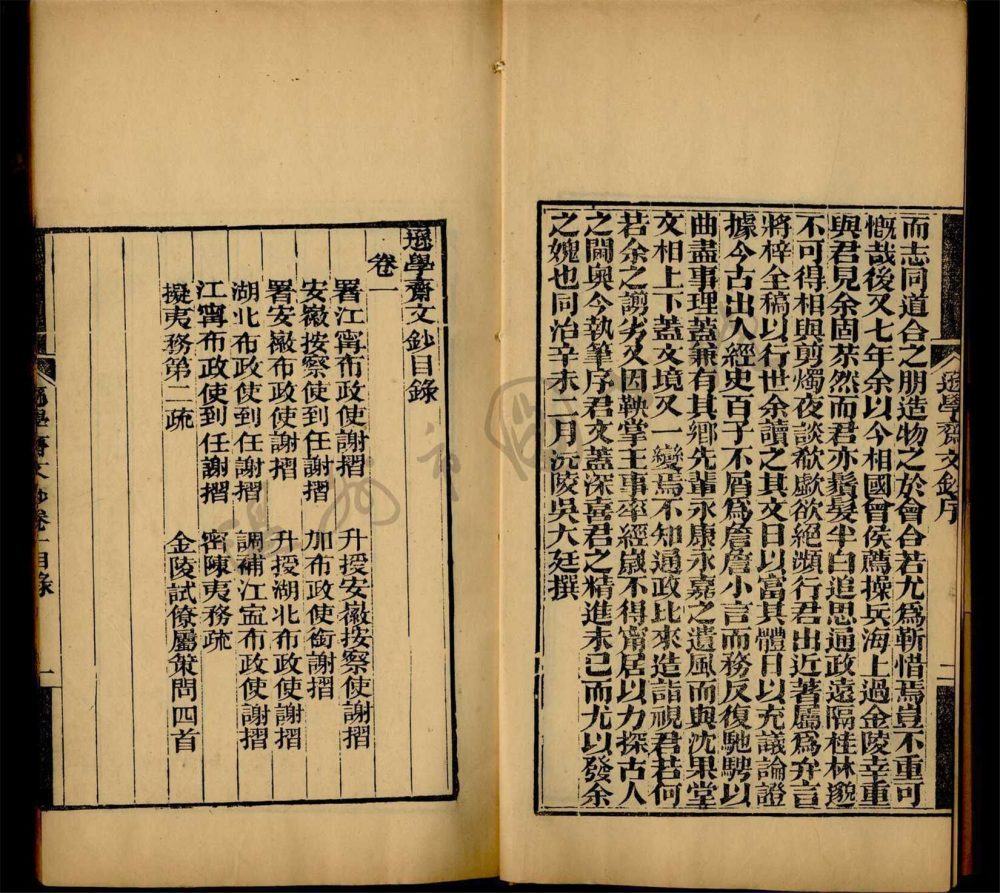 而志同道合之朋造物之於會合若尤爲靳惜焉豈不重可
慨哉後又七年余以今相國曾侯薦操兵海上過金陵幸重
與君見余固茶然而君亦鬚髮半白追思通政遠隔桂林邈
不可得相與剪燭夜談欷歔欲絕瀕行君出近著屬爲弁言
將梓全稿以行世余讀之其文日以富其體日以充議論證
據今古出入經史百子不屑爲詹詹小言而務反復馳騁以
曲盡事理蓋兼有其鄉先輩永康永嘉之遺風而與沈果堂
文相上下蓋文境又一變焉不知通政比來造詣視君若何
若余之謭劣又因鞅掌王事率經歲不得甯居以力探古人
之閫奧今執筆序君文蓋深喜君之精進未已而尤以發余
之媿也同治辛未二月沅陵吳大廷撰
遜學齋文鈔序
二
遜學齋文鈔目錄
卷一
署江甯布政使謝摺 升授安徽按察使謝摺
安徽按察使到任謝摺 加布政使銜謝摺
署安徽布政使謝摺 升授湖北布政使謝摺
湖北布政使到任謝摺 調補江甯布政使謝摺
江甯布政使到任謝摺 密陳夷務疏
擬夷務第二疏 金陵試僚屬策問四首
遜學齋文鈔卷一目錄
一